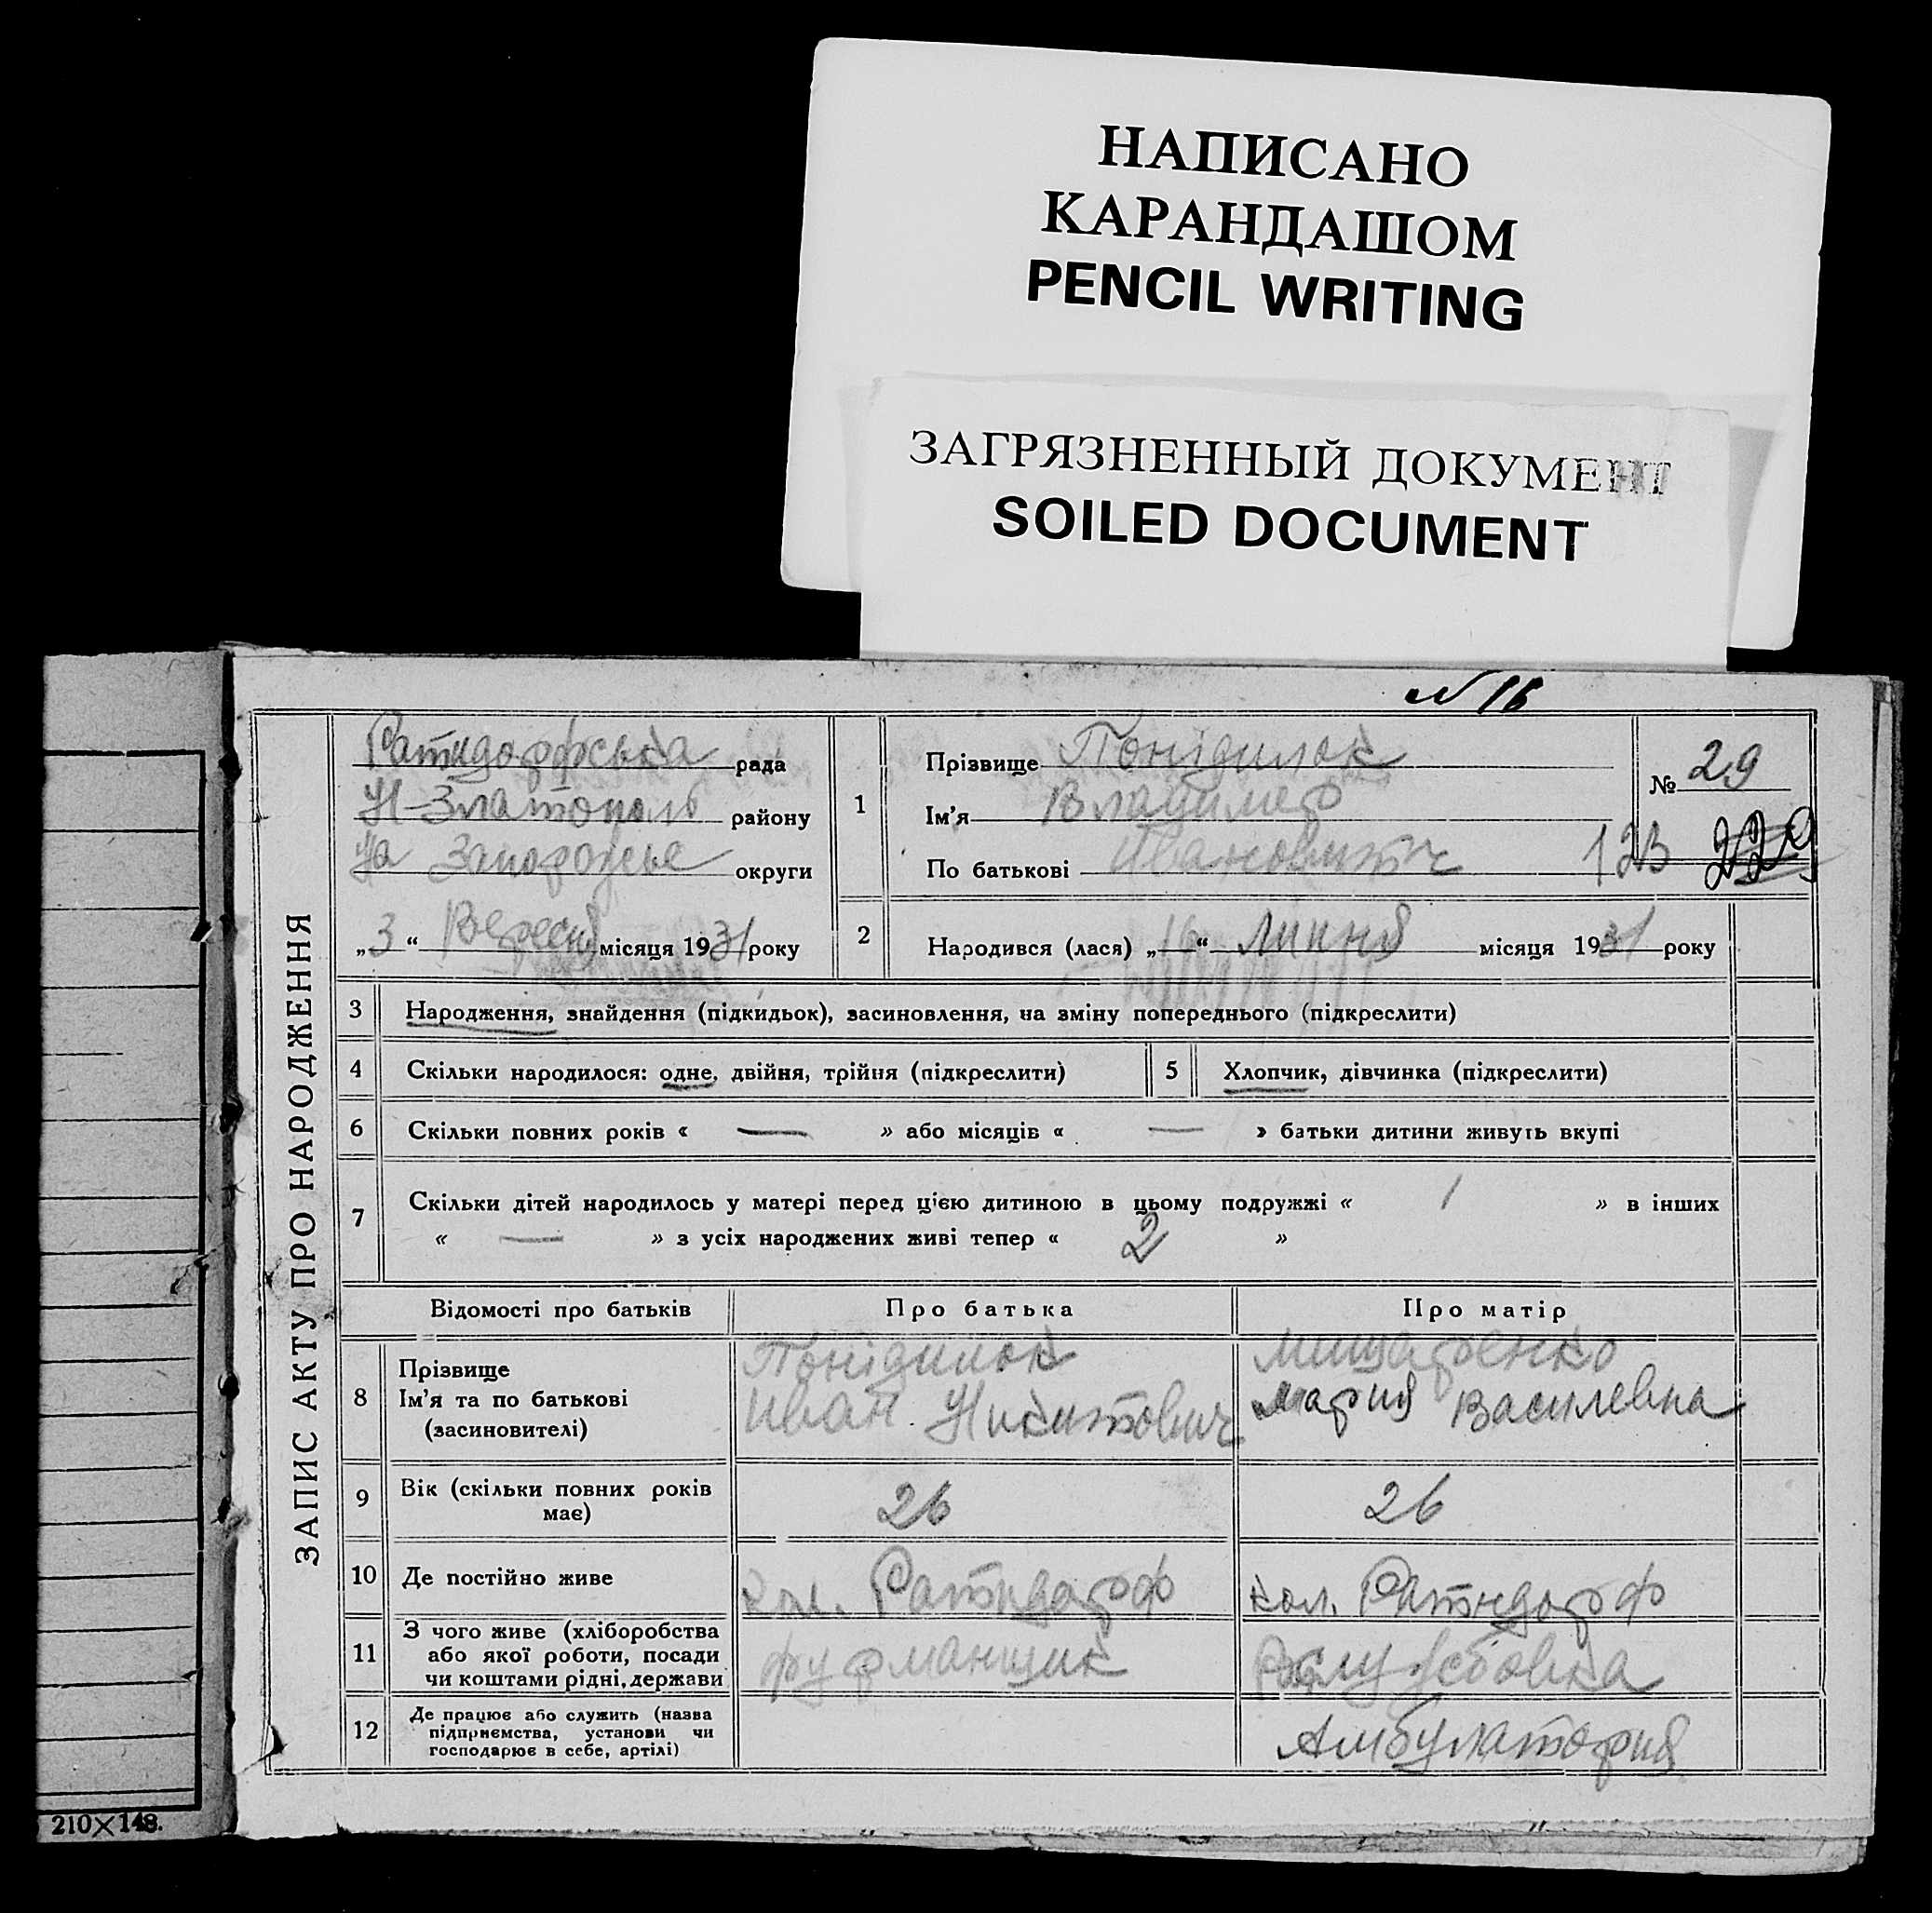 НАПИСАНО
КАРАНДАШОМ
PENCIL WRITING
ЗАГРЯЗНЕННЫЙ ДОКУМЕНТ
SOILED DOCUMENT
N 16
ЗАПИС АКТУ ПРО НАРОДЖЕННЯ
Ратндорфська рада
Н-Златополь району
На Запорожье округи
„3“ Вересня місяця 1931 року
1
Прізвище Понідилок
Ім'я Владимер
По батькові Ивановитч
№ 29
123 229
2 Народився (лася) „16“ Липня місяця 1931 року
3 Народження, знайдення (підкидьок), засиновлення, на зміну попереднього (підкреслити)
4 Скільки народилося: одне, двійня, трійня (підкреслити)
5 Хлопчик, дівчинка (підкреслити)
6 Скільки повних років « — » або місяців « — » батьки дитини живуть вкупі
7 Скільки дітей народилось у матері перед цією дитиною в цьому подружжі « 1 » в інших
« — » з усіх народжених живі тепер « 2 »
Відомості про батьків Про батька Про матір
8 Прізвище
Ім'я та по батькові
(засиновителі)
Понідилок
Иван Никитович
Мишаренко
Мария Василевна
9 Вік (скільки повних років
має)
26 26
10 Де постійно живе кол. Ратндорф кол. Ратндорф
11 З чого живе (хліборобства
або якої роботи, посади
чи коштами рідні, держави
фурманщик
службовка
12 Де працює або служить (назва
підприємства, установи чи
господарює в себе, артілі)
Амбулатория
210×148.